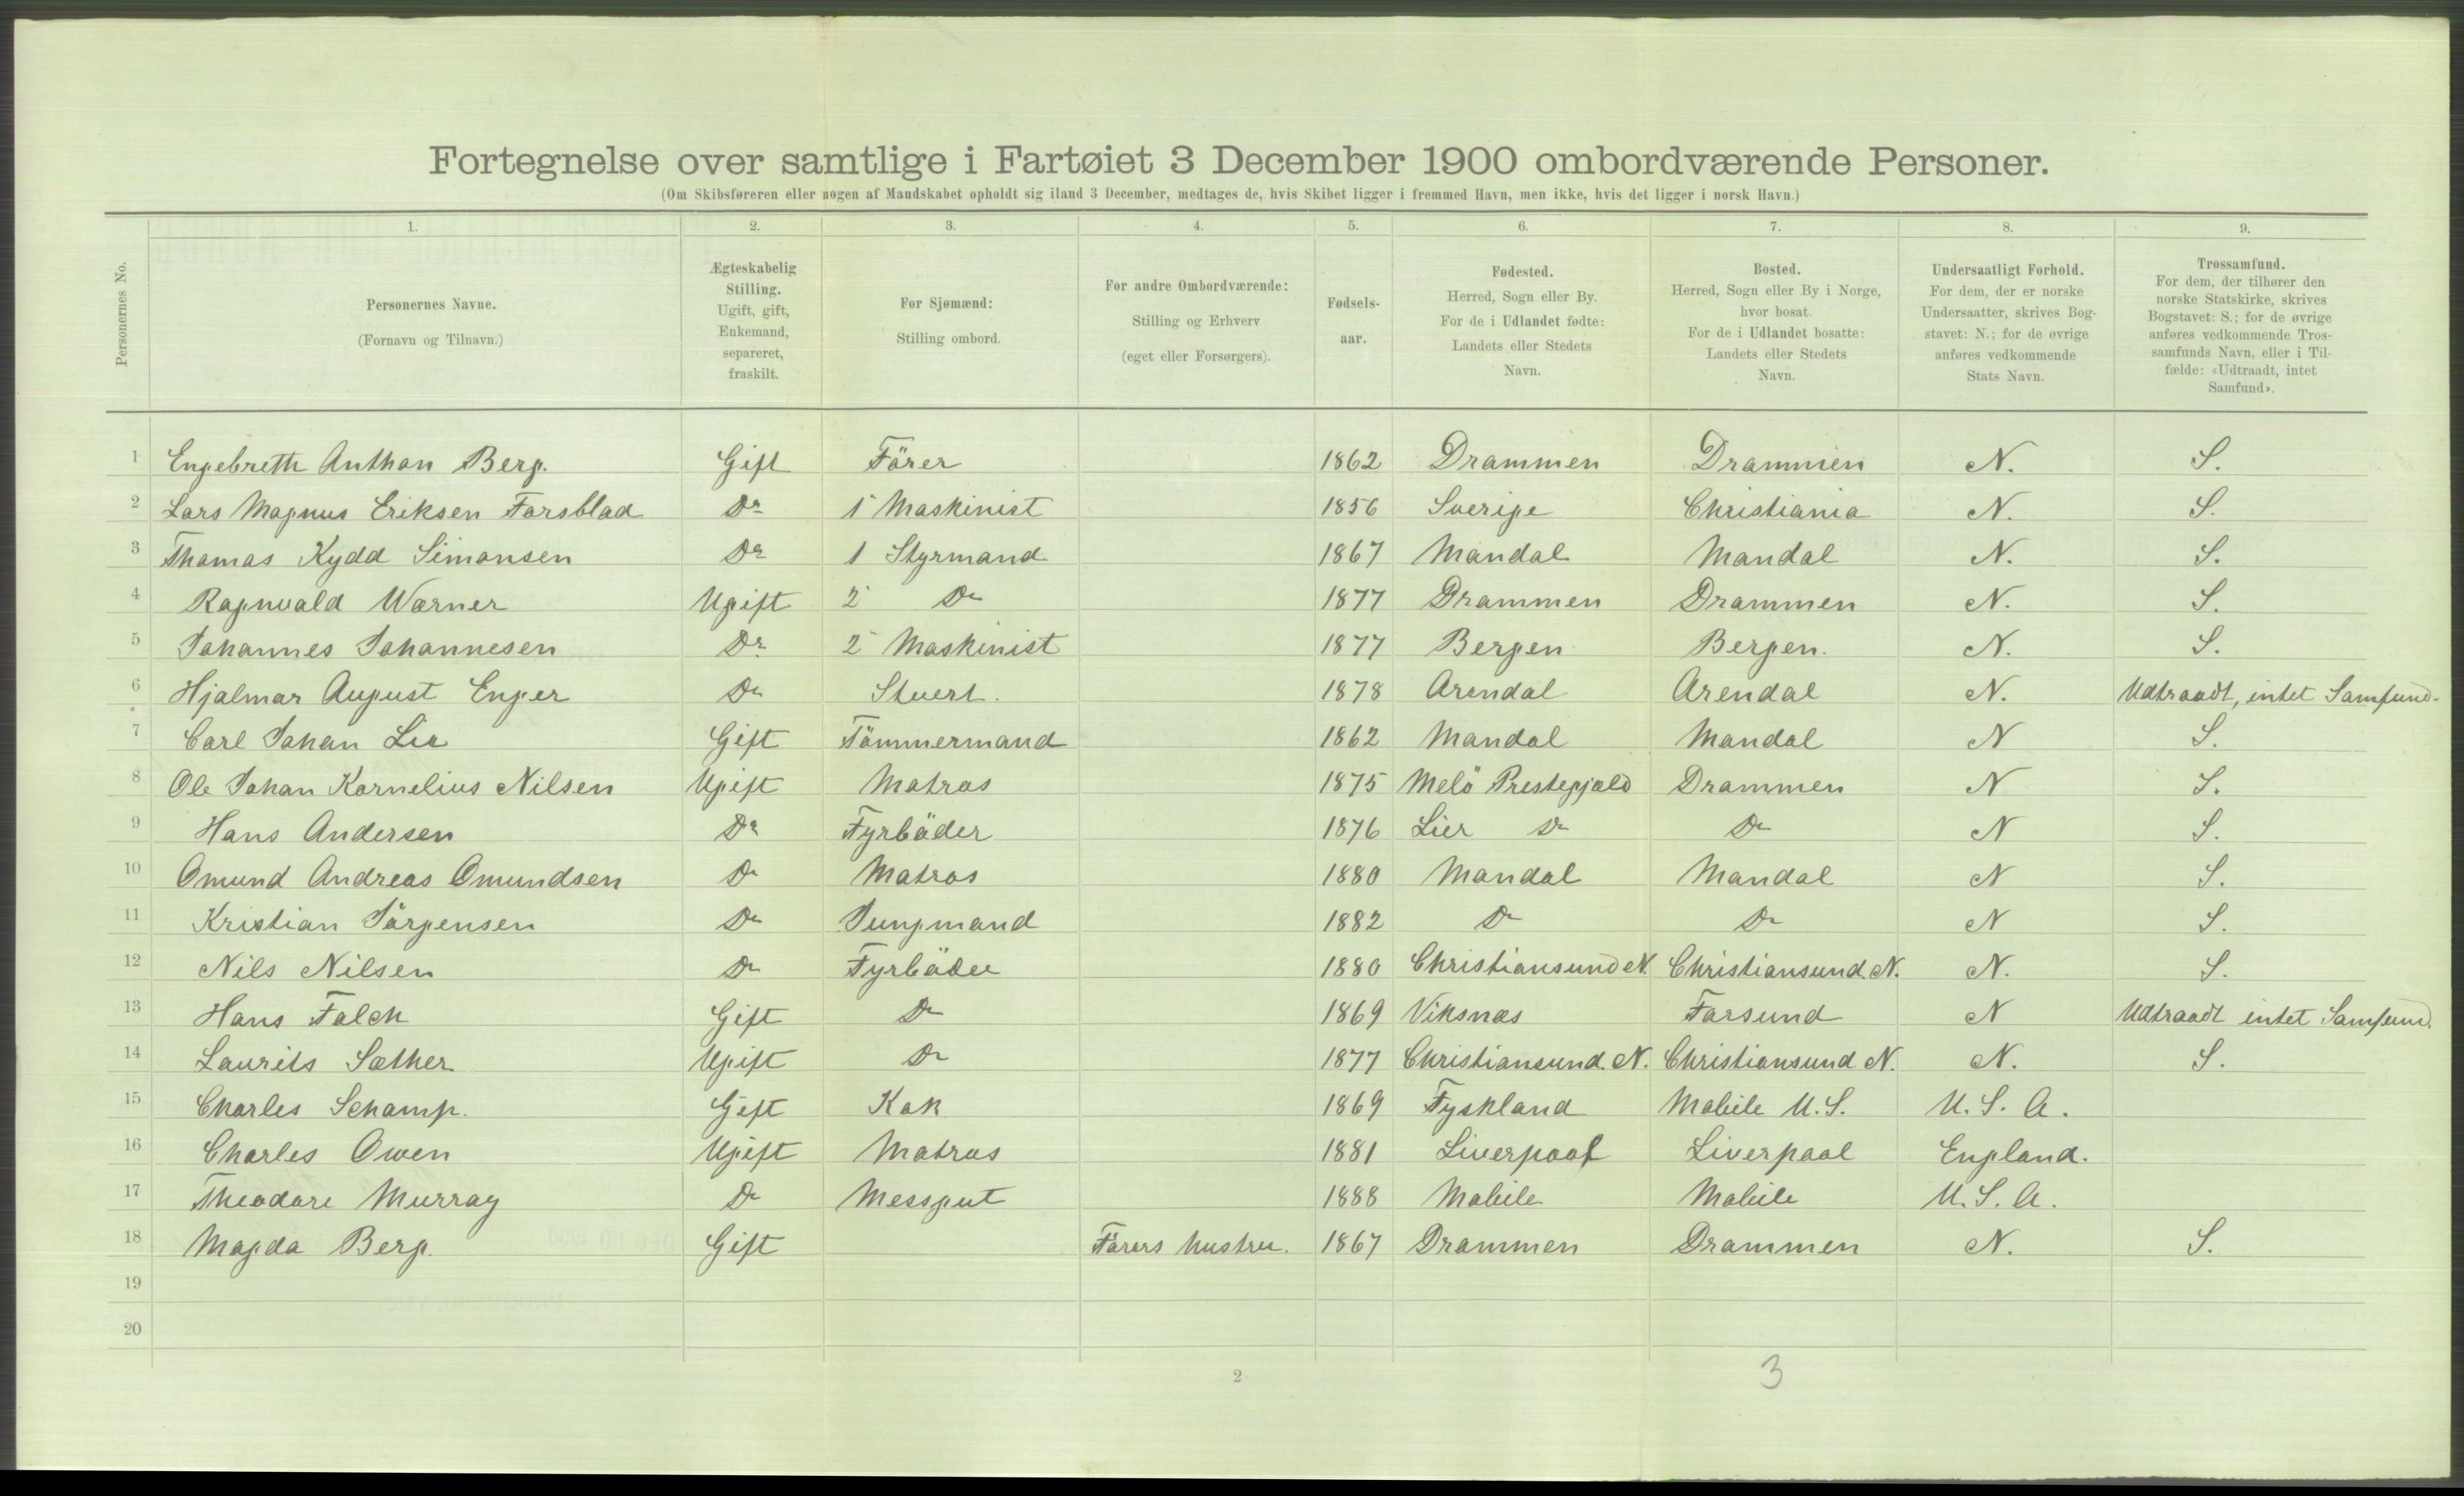 Fortegnelse over samtlige i Fartøiet 3 December 1900 ombordværende Personer.
(Om Skibsføreren eller nogen af Mandskabet opholdt sig iland 3 December, medtages de, hvis Skibet ligger i fremmed Havn, men ikke, hvis det ligger i norsk Havn.)
1. 2. 3. 4. 5. 6. 7. 8. 9.
Personernes No.
Personernes Navne.
(Fornavn og Tilnavn.)
Ægteskabelig
Stilling.
Ugift, gift,
Enkemand,
separeret,
fraskilt.
For Sjømænd:
Stilling ombord.
For andre Ombordværende:
Stilling og Erhverv
(eget eller Forsørgers).
Fødsels-
aar.
Fødested.
Herred, Sogn eller By.
For de i Udlandet fødte:
Landets eller Stedets
Navn.
Bosted.
Herred, Sogn eller By i Norge,
hvor bosat.
For de i Udlandet bosatte:
Landets eller Stedets
Navn.
Undersaatligt Forhold.
For dem, der er norske
Undersaatter, skrives Bog-
stavet: N.; for de øvrige
anføres vedkommende
Stats Navn.
Trossamfund.
For dem, der tilhører den
norske Statskirke, skrives
Bogstavet: S.; for de øvrige
anføres vedkommende Tros-
samfunds Navn, eller i Til-
fælde: «Udtraadt, intet
Samfund».
1 Engebreth Anthon Berg. Gift Förer 1862 Drammen Drammen N. S.
2 Lars Magnus Eriksen Forsblad Do 1 Maskinist 1856 Sverige Christiania N. S.
3 Thomas Kydd Simonsen Do 1 Styrmand 1867 Mandal Mandal N. S.
4 Ragnvald Warner Ugift 2 Do 1877 Drammen Drammen N. S.
5 Johannes Johannesen Do 2 Maskinist 1877 Bergen Bergen. N. S.
6 Hjalmar August Enger Do Stuert. 1878 Arendal Arendal N. Udtraadt, intet Samfund.
7 Carl Johan Lie Gift Tömmermand 1862 Mandal Mandal N S.
8 Ole Johan Kornelius Nilsen Ugift Matros 1875 Melö Prestegjæld Drammen N S.
9 Hans Andersen Do Fyrböder 1876 Lier Do Do N S.
10 Omund Andreas Omundsen Do Matros 1880 Mandal Mandal N S.
11 Kristian Jörgensen Do Jungmand 1882 Do Do N S.
12 Nils Nilsen Do Fyrböder 1880 Christiansund N. Christiansund. N. N. S.
13 Hans Falch Gift Do 1869 Viksnæs Farsund N Udtraadt intet Samfund.
14 Laurits Sæther Ugift Do 1877 Christiansund. N. Christiansund N. N. S.
15 Charles Schamp. Gift Kok 1869 Tyskland Mobile U.S. U.S.A.
16 Charles Owen Ugift Matros 1881 Liverpool Liverpool England.
17 Theodore Murray Do Messgut 1888 Mobile Mobile U.S.A.
18 Magda Berg. Gift Förers hustru. 1867 Drammen Drammen N. S.
19
20
2
3